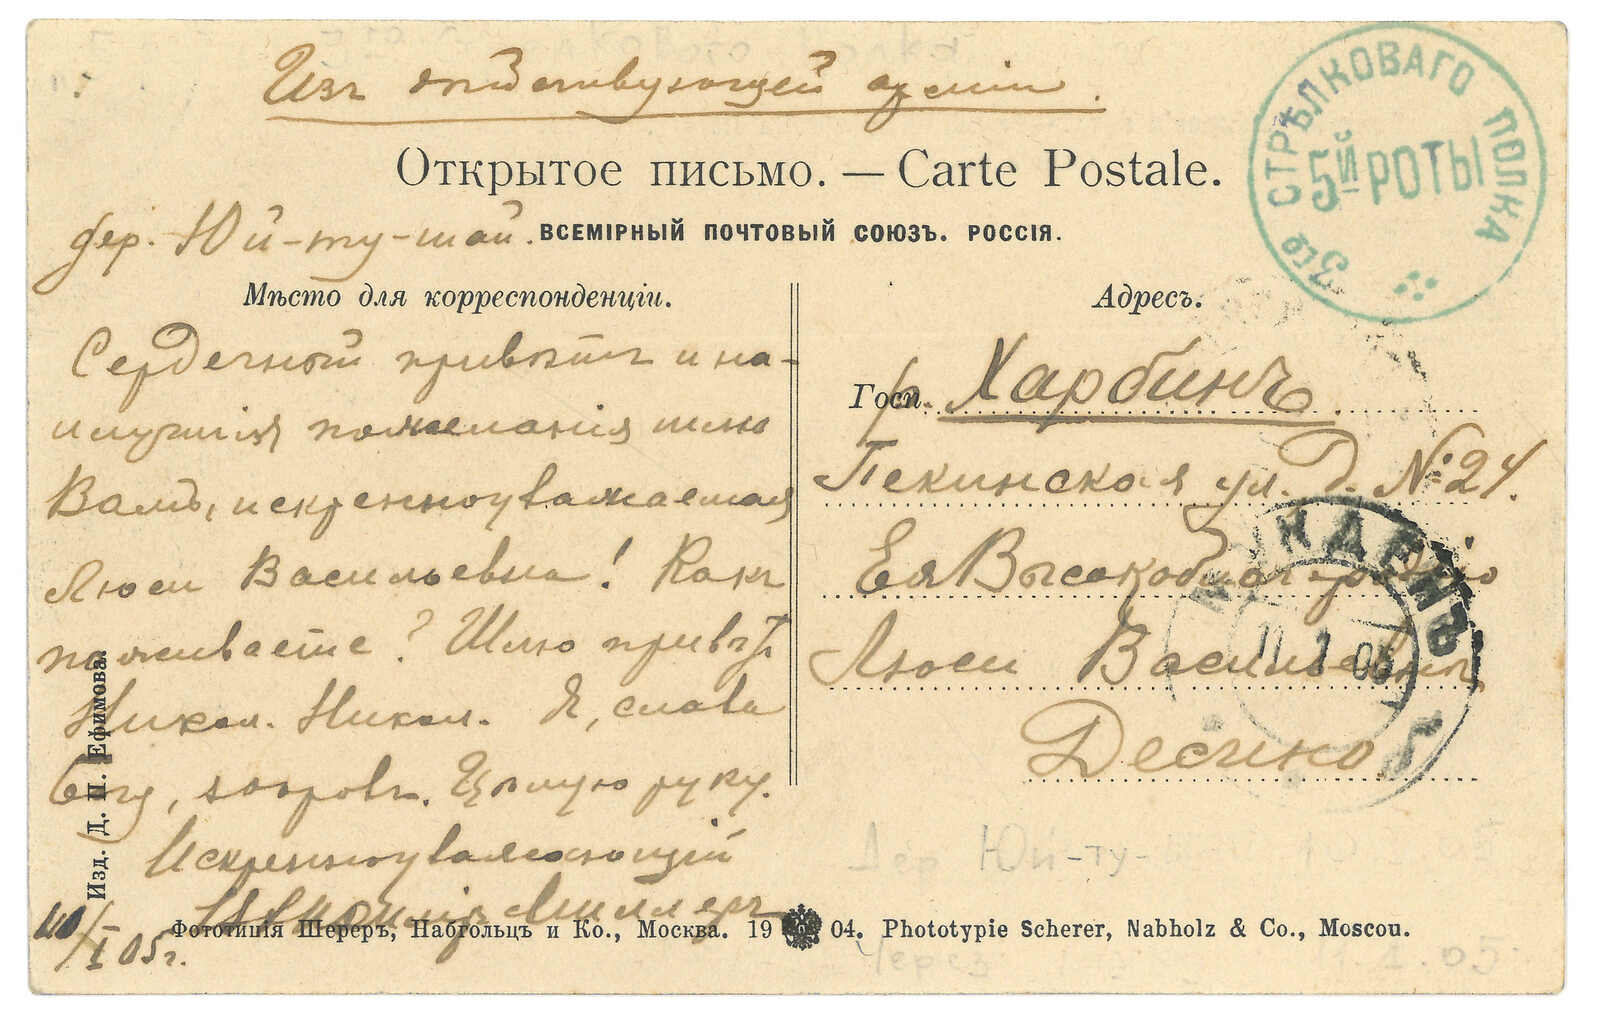 Изъ действующей арміи.
3го СТРѢЛКОВАГО ПОЛКА
5й РОТЫ
Открытое письмо. — Carte Postale.
дер. Юй-ту-шай.
ВСЕМІРНЫЙ ПОЧТОВЫЙ СОЮЗЪ. РОССІЯ.
Мѣсто для корреспонденціи.
Адресъ.
Сердечный привѣтъ и на-
илучшія пожеланія шлю
Вамъ, искренноуважаемая
Люси Васильевна! Какъ
поживаете? Шлю привѣтъ
Никол. Никол. Я, слава
Богу, здоровъ. Цѣлую руку.
Искренноуважающій
Миллеръ
10/I 05г.
Госп.
гр. Харбинъ.
Пекинская ул. Д. №24.
Ея Высокоблагородію
Люси Васильевнѣ
Десино
МУКДЕНЪ
11 1 05
Дер Юй-ту-
Через
1.1.05
Изд. Д. П. Ефимова.
Фототипія Шереръ, Набгольцъ и Ко., Москва. 19 04. Phototypie Scherer, Nabholz & Co., Moscou.